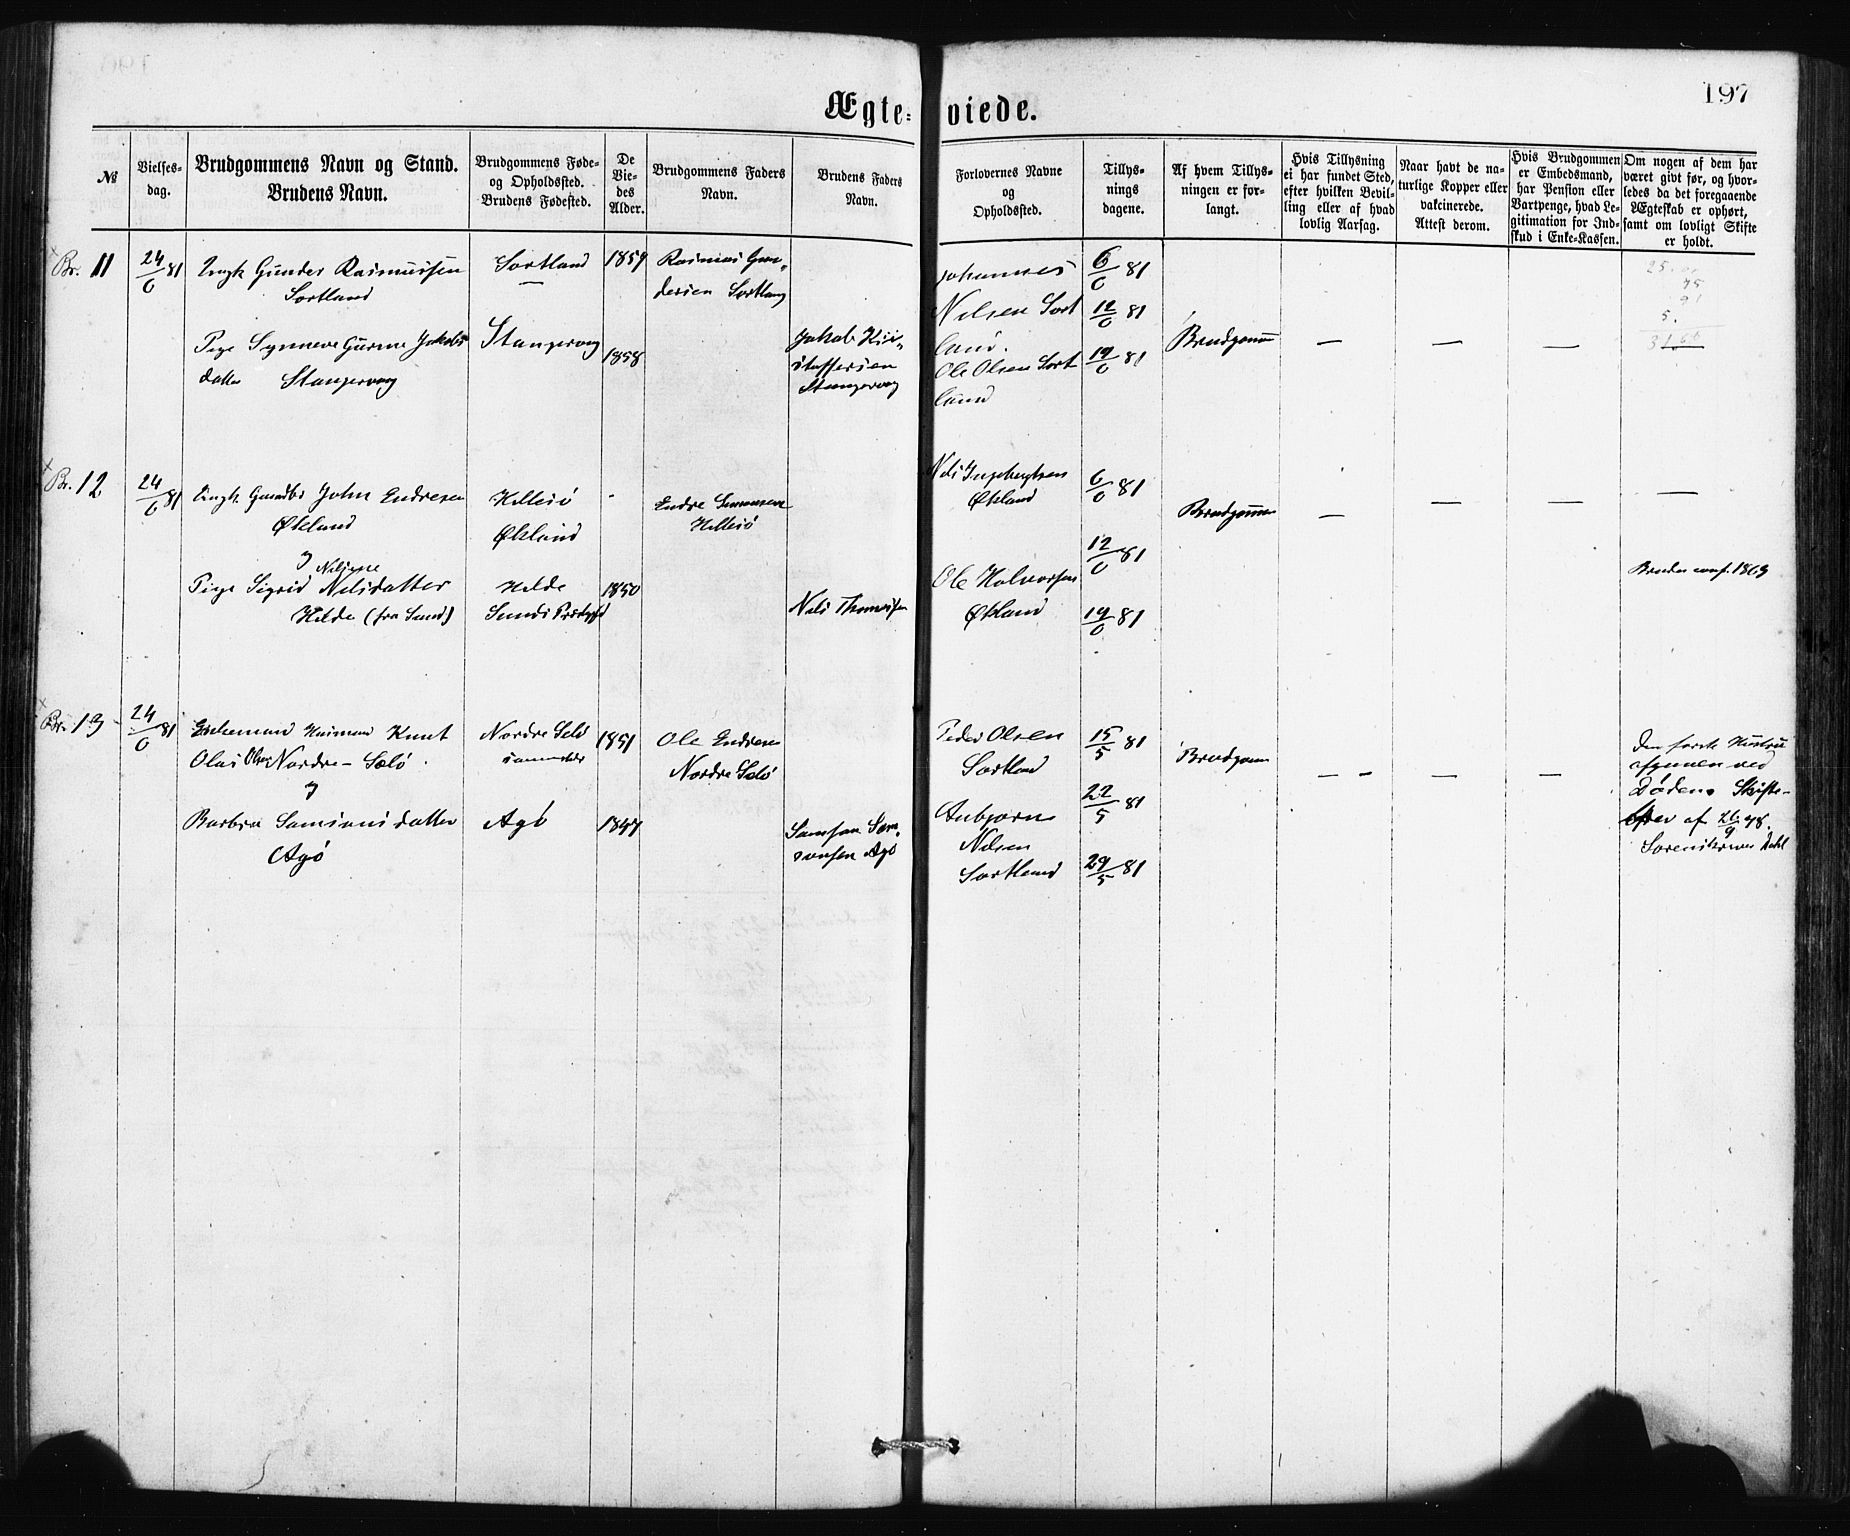 197
Ægte-viede.
№
Vielses-
dag.
Brudgommens Navn og Stand.
Brudens Navn.
Brudgommens Føde-
og Opholdssted.
Brudens Fødested.
De
Vie-
des
Alder.
Brudgommens Faders
Navn.
Brudens Faders
Navn.
Forlovernes Navne
og
Opholdssted.
Tillys-
nings
dagene.
Af hvem Tillys-
ningen er for-
langt.
Hvis Tillysning
ei har fundet Sted,
efter hvilken Bevil-
ling eller af hvad
lovlig Aarsag.
Naar havt de na-
turlige Kopper eller
vakcinerede.
Attest derom.
Hvis Brudgommen
er Embedsmand,
har Pension eller
Vartpenge, hvad Le-
gitimation for Ind-
skud i Enke-Kassen.
Om nogen af dem har
været givt før, og hvor-
ledes da det foregaaende
Ægteskab er ophørt,
samt om lovligt Skifte
er holdt.
Br. 11
24/6 81
Ungk Gunder Rasmussen
Sortland
Pige Synneve Gurine Jakobs
datter Stangervag
Sortland
—
Stangervag
1859
1858
Rasmus Gun-
dersen Sortland
Jakob Kri-
stoffersen
Stangervag
Johannes
Nilsen Sort
land.
Ole Olsen Sort
land
6/6 81
12/6 81
19/6 81
Brudgommen
— — —
25
75
5.
Br. 12
24/6 81
Ungk. John Endresen
Økland
og Nilsine
Pige Sigrid Nilsdatter
Hilde (fra Sund)
Hillesø
Økland
Hilde
Sunds
1850
Endre
Hillesø
Nils Thomassen
Nils Ingebrigtsen
Økland
Ole Halvorsen
Økland
6/6 81
12/6 81
19/6 81
Brudgommen
— — — —
Bruden conf. 1863
Br. 13
24/6 81
Enkemand Husmand Knut
Olai Olsen Nordre-Selø
og
Barbra Samsonsdatter
Agø
Nordre Selø
sammesteds
Agø
1851
1847
Ole Endresen
Nordre Selø
Samson Sam-
sonsen Agø
Peder Olsen
Sortland
Anbjørn
Nilsen
Sortland
15/5 81
22/5 81
29/5 81
Brudgommen
— - — —
Den første Hustru
afgangen ved
Døden. Skifte-
brev af 26/9 78.
Sorenskriver Dahl